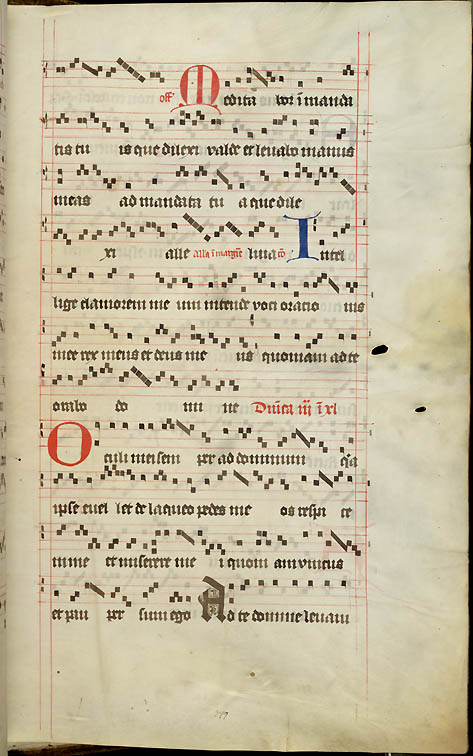 off Medita bor ī manda
tis tu is que dilexi valde et levabo manus
meas ad mandata tu a que dile
xi alle lui a cō Intel
lige clamorem me um intende voci oratio nis
mee rex meus et deus me us quoniam ad te
orabo do mi ne Dn̄ica iij ī xl
Oculi mei sem per ad dominum q̄a
ipse evel let de laqueo pedes me os respi ce
in me et miserere me i quoni am unicus
et pau per sum ego Ad te domine levavi